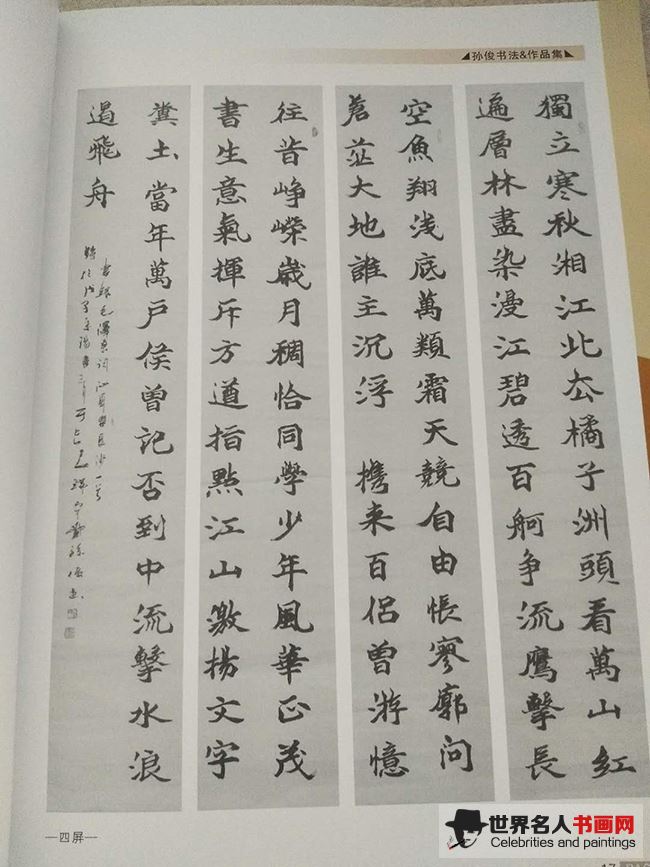 孙俊书法&作品集
獨立寒秋湘江北厺橘子洲頭看萬山紅
遍層林盡染漫江碧透百舸争流鷹擊長
空魚翔浅底萬類霜天競自由悵寥廓问
蒼茫大地誰主沉浮 携来百侣曾游憶
往昔峥嵘歲月稠恰同學少年風華正茂
書生意氣揮斥方遒指點江山激揚文字
糞土當年萬戶侯曾記否到中流擊水浪
遏飛舟
毛澤東词沁園春長沙一首
—四屏—
世界名人书画网
Celebrities and paintings